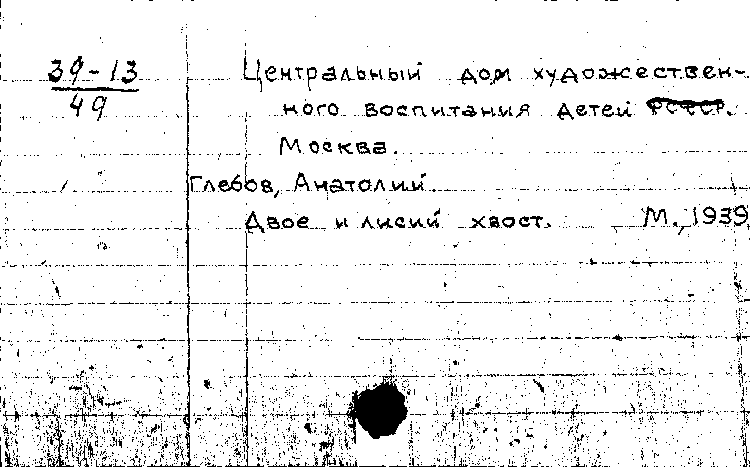 39-13
49
Центральный дом художествен-
ного воспитания детей РСФСР.
Москва.
Глебов, Анатолий.
Двое и лисий хвост. М., 1939